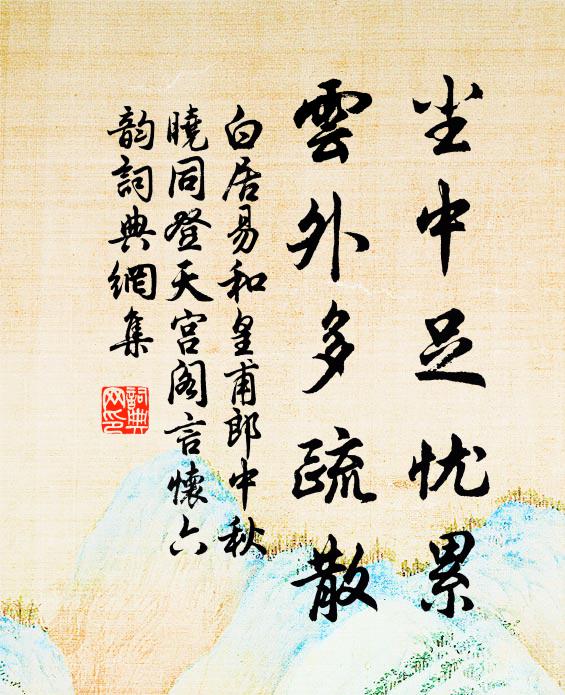 尘中足忧累
雲外多疏散
白居易和皇甫郎中秋
曉同登天宮阁言懷六
韵詞典網集
詞典
网印